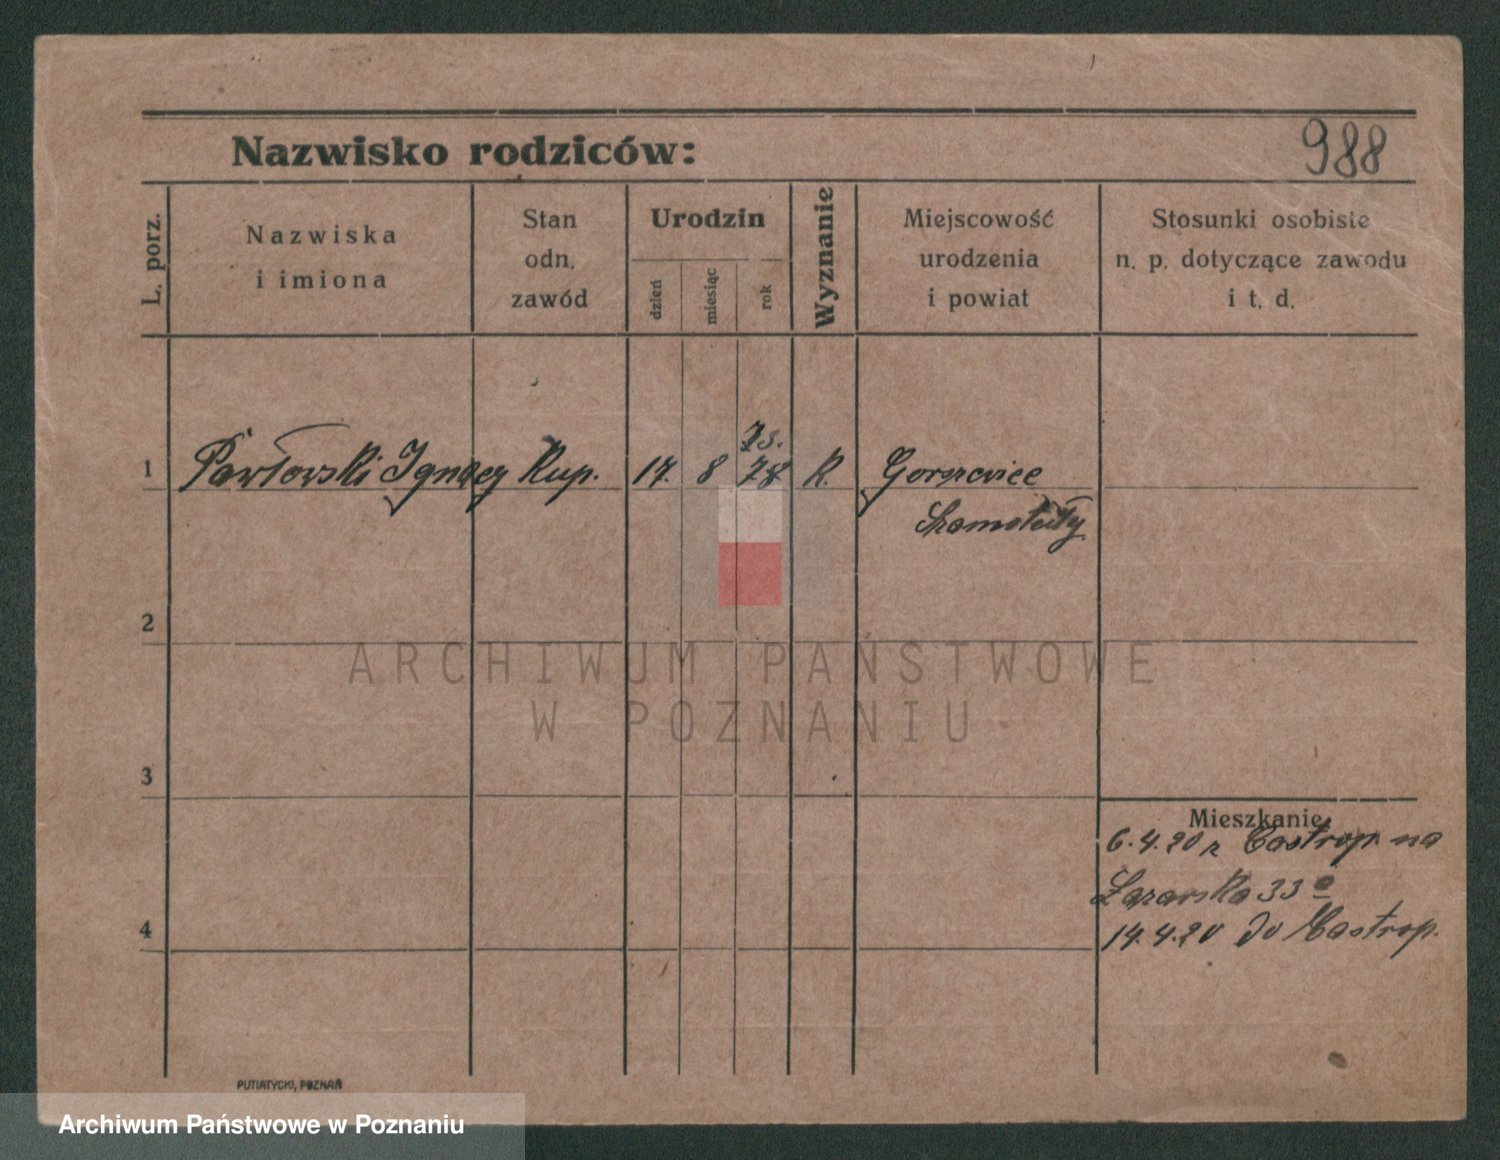 988
Nazwisko rodziców:
L. porz.
Nazwiska
i imiona
Stan
odn.
zawód
Urodzin
dzień
miesiąc
rok
Wyznanie
Miejscowość
urodzenia
i powiat
Stosunki osobiste
n. p. dotyczące zawodu
i t. d.
73.
1 Pawłowski Ignacy Kup. 17. 8 78 K. Gorszewice
Szamotuły
2
ARCHIWUM PAŃSTWOWE
W POZNANIU
3
Mieszkanie
6.4.20 z Castrop. na
Łazarska 33a
4
14.4.20 do Castrop.
PUTIATYCKI, POZNAŃ
Archiwum Państwowe w Poznaniu